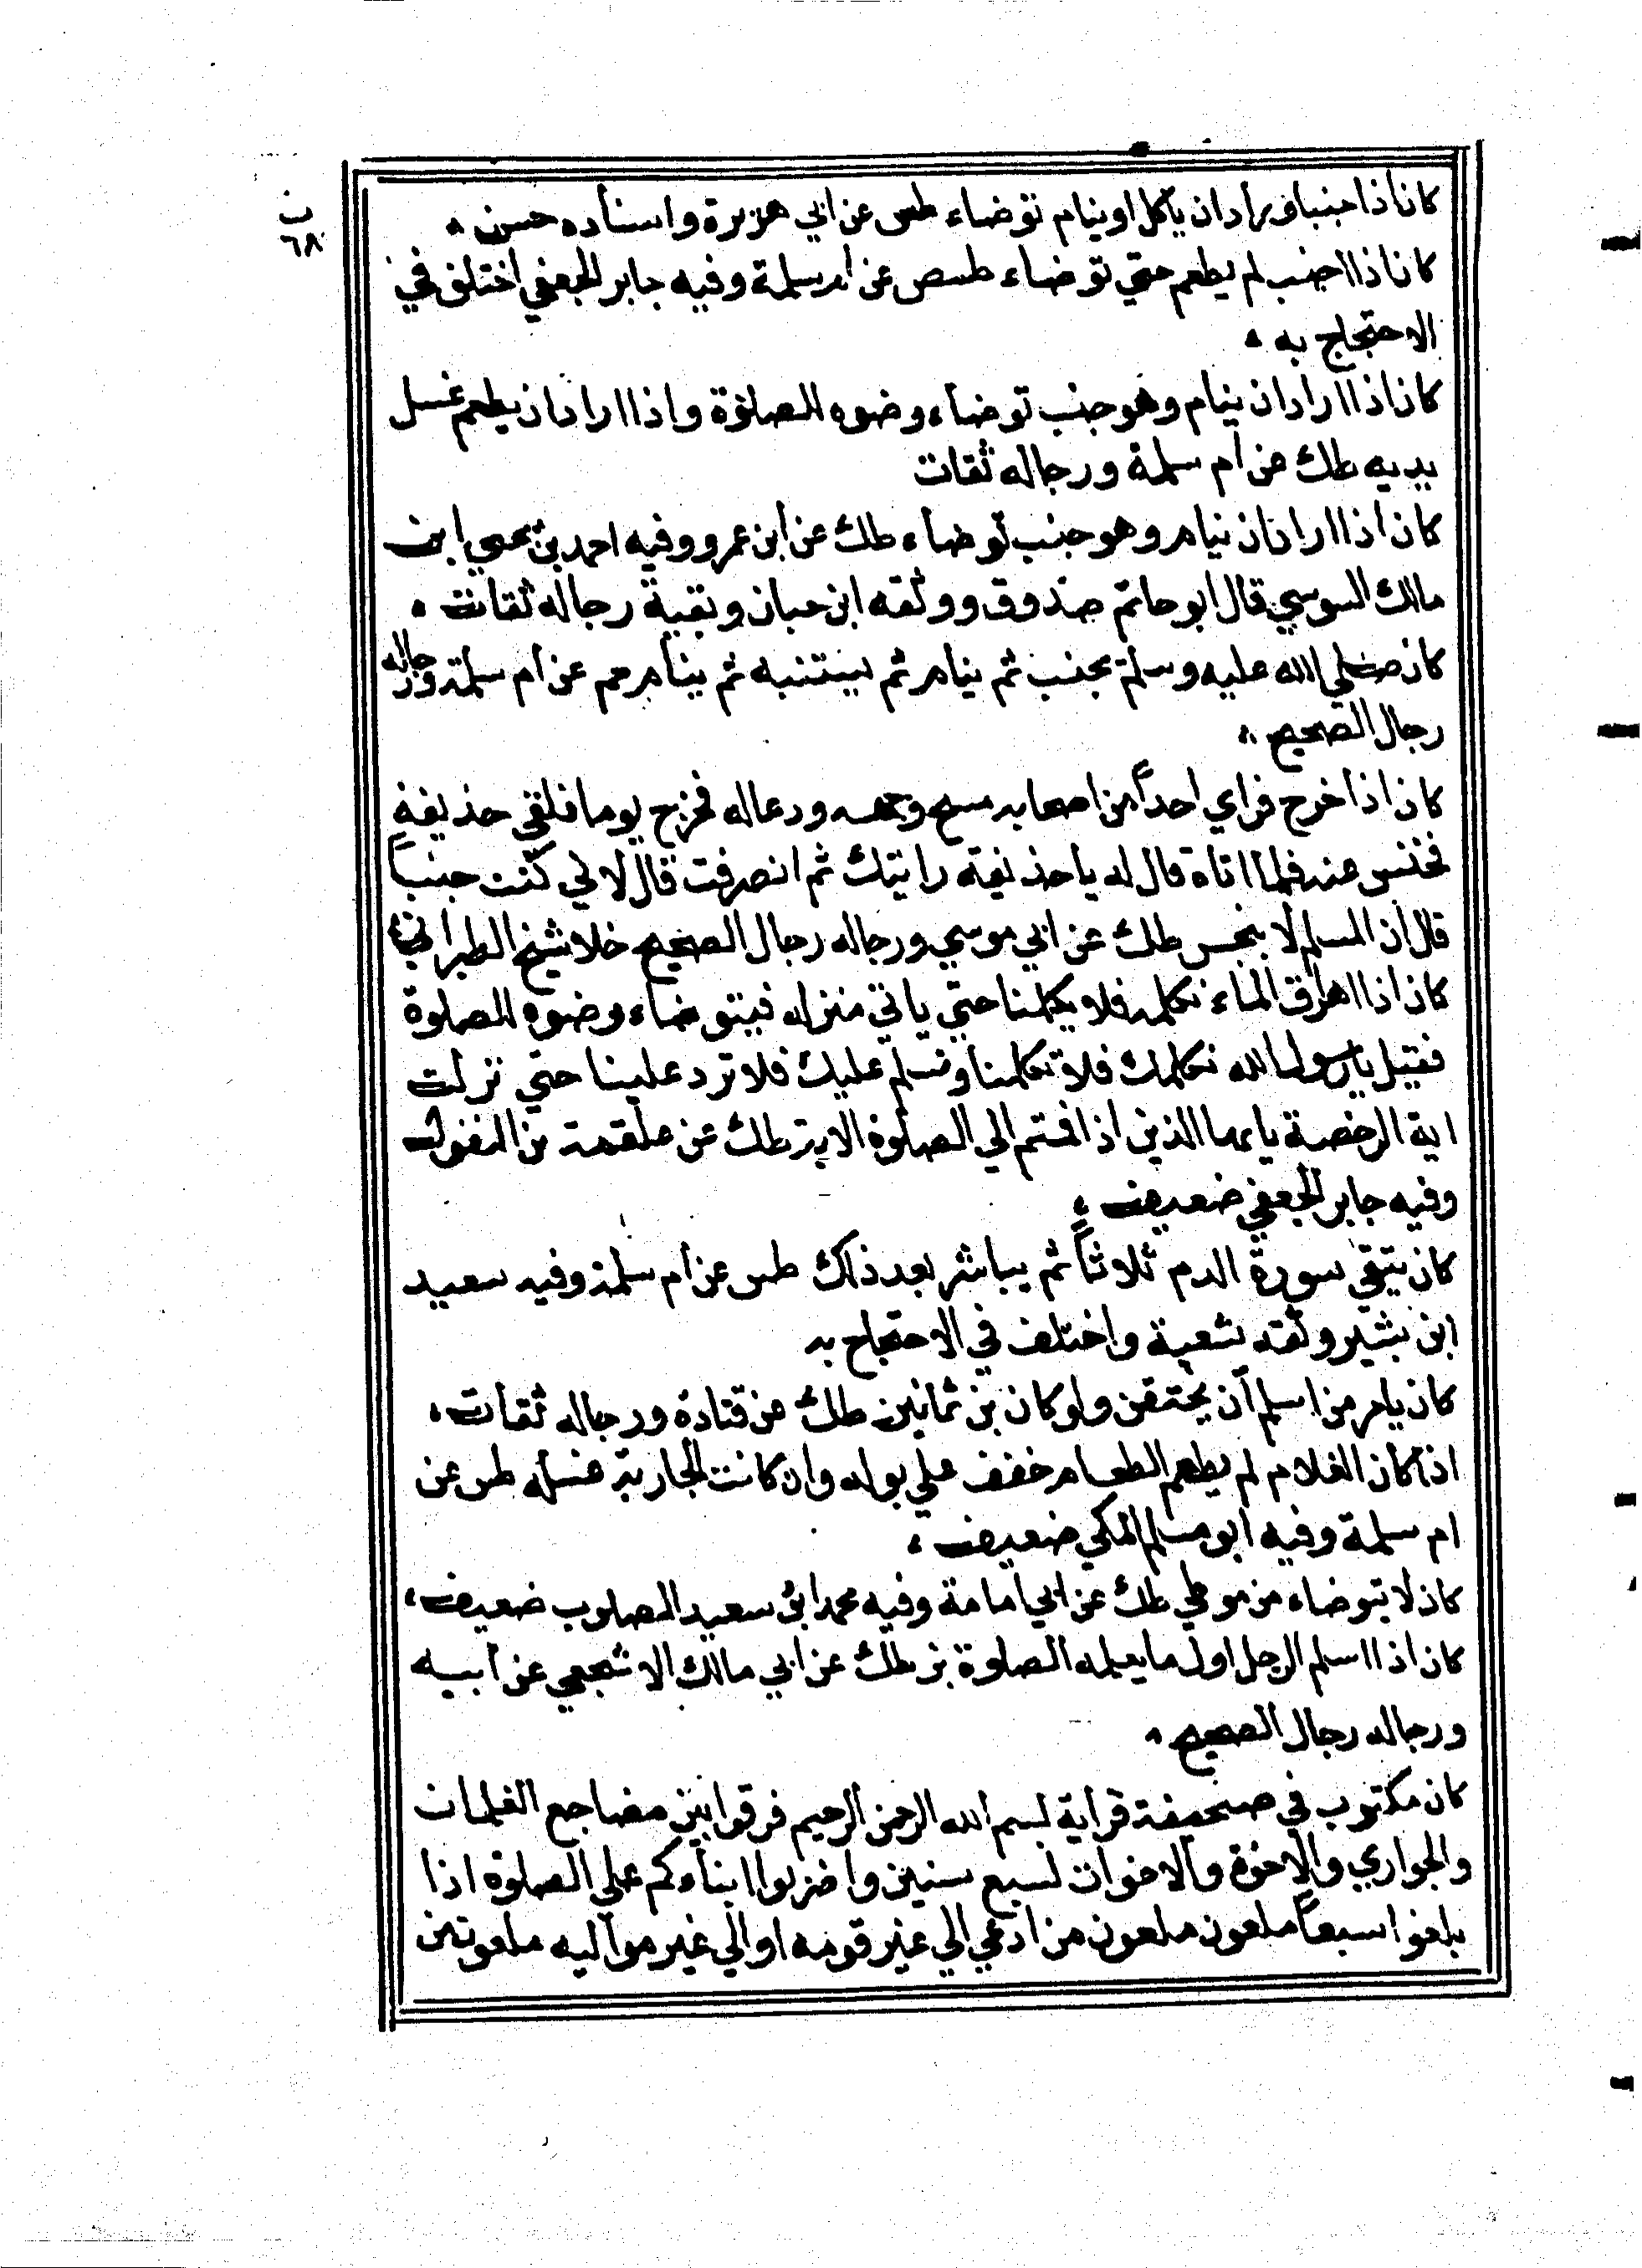 ب
٦٨
كان اذا جنبا و يراد ان ياكل او ينام توضاء طس عن ابي هريرة واسناده حسن ،
كان اذا اجنب لم يطعم حتي توضاء طس عن ام سلمة وفيه جابر الجعفي اختلف في
الاحتجاج به ،
كان اذا اراد ان ينام وهو جنب توضاء وضوه للصلوة واذا اراد ان يطعم غسل
يديه طك عن ام سلمة ورجاله ثقات
كان اذا اراد ان ينام وهو جنب توضاء طك عن ابن عمرو وفيه احمد بن يحيي ابن
مالك السوسي قال ابو حاتم صدوق ووثقه ابن حبان وبقية رجاله ثقات ،
كان صلي الله عليه وسلم يجنب ثم ينام ثم ينتبه ثم ينام حم عن ام سلمة ورجاله
رجال الصحيح ،
كان اذا خرج فراي احدا من اصحابه مسح وجهه ودعاله فخرج يوما فلقي حذيفة
فخنس عنه فلما اتاه قال له ياحذيفة رايتك ثم انصرفت قال لاني كنت جنبا
قال ان المسلم لا ينجس طك عن ابي موسي ورجاله رجال الصحيح خلا شيخ الطبراني
كان اذا اهراق الماء نكلمه فلا يكلمنا حتي ياتي منزله فيتوضاء وضوه للصلوة
فقيل يارسول الله نكلمك فلا تكلمنا ونسلم عليك فلا ترد علينا حتي نزلت
اية الرخصة يايها الذين اذا قمتم الي الصلوة الاية طك عن علقمة بن الفغوا
وفيه جابر الجعفي ضعيف ،
كان يتقي سورة الدم ثلاثا ثم يباشر بعد ذلك طس عن ام سلمة وفيه سعيد
ابن بشير وثقه شعبة واختلف في الاحتجاج به
كان يامر من اسلم ان يختتن ولو كان بن ثمانين طك عن قتادة ورجاله ثقات ،
اذا كان الغلام لم يطعم الطعام خفف علي بوله وان كانت الجارية غسله طس عن
ام سلمة وفيه ابو مسلم المكي ضعيف ،
كان لا يتوضاء من موطي طك عن ابي امامة وفيه محمد ابن سعيد المصلوب ضعيف ،
كان اذا اسلم الرجل اول ما يعلمه الصلوة بز طك عن ابي مالك الاشجعي عن ابيه
ورجاله رجال الصحيح ،
كان مكتوب في صحيفة قراية بسم الله الرحمن الرحيم فرقوا بين مضاجع الغلمان
والجواري والاخوة والاخوات لسبع سنين واضربوا ابناوكم علي الصلوة اذا
بلغوا سبعا ملعون ملعون من ادعي الي غير قومه او الي غير مواليه ملعون من